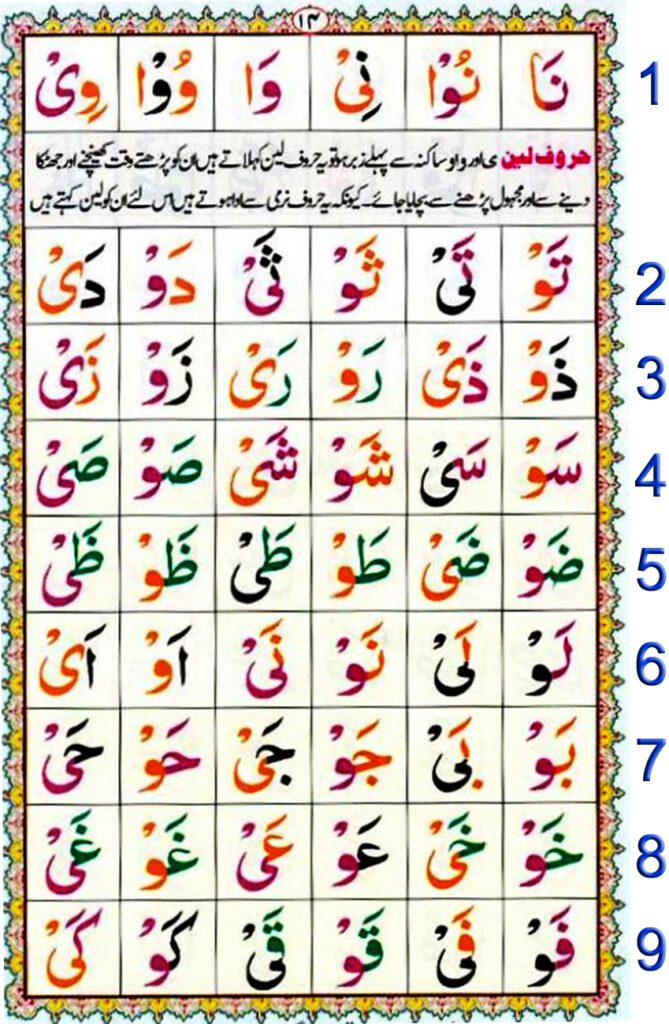 ۱۴
نَا نُوْا نِیْ وَا وُوْا وِیْ 1
حروف لین ی اور واو ساکنہ سے پہلے زبر ہو تو یہ حروف لین کہلاتے ہیں ان کو پڑھتے وقت کھینچنے اور جھٹکا
دینے سے اور مجہول پڑھنے سے بچایا جائے۔ کیونکہ یہ حروف نرمی سے ادا ہوتے ہیں اس لئے ان کو لین کہتے ہیں
تَوْ تَیْ ثَوْ ثَیْ دَوْ دَیْ 2
ذَوْ ذَیْ رَوْ رَیْ زَوْ زَیْ 3
سَوْ سَیْ شَوْ شَیْ صَوْ صَیْ 4
ضَوْ ضَیْ طَوْ طَیْ ظَوْ ظَیْ 5
لَوْ لَیْ نَوْ نَیْ اَوْ اَیْ 6
بَوْ بَیْ جَوْ جَیْ حَوْ حَیْ 7
خَوْ خَیْ عَوْ عَیْ غَوْ غَیْ 8
فَوْ فَیْ قَوْ قَیْ کَوْ کَیْ 9